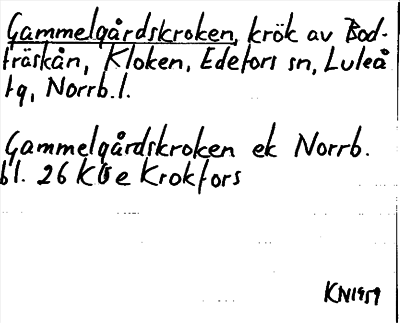 Gammelgårdskroken, krök av Bod-
träskån, Kloken, Edefors sn, Luleå
tg, Norrb.l.
Gammelgårdskroken ek Norrb.
bl. 26 K8e Krokfors
KN1959